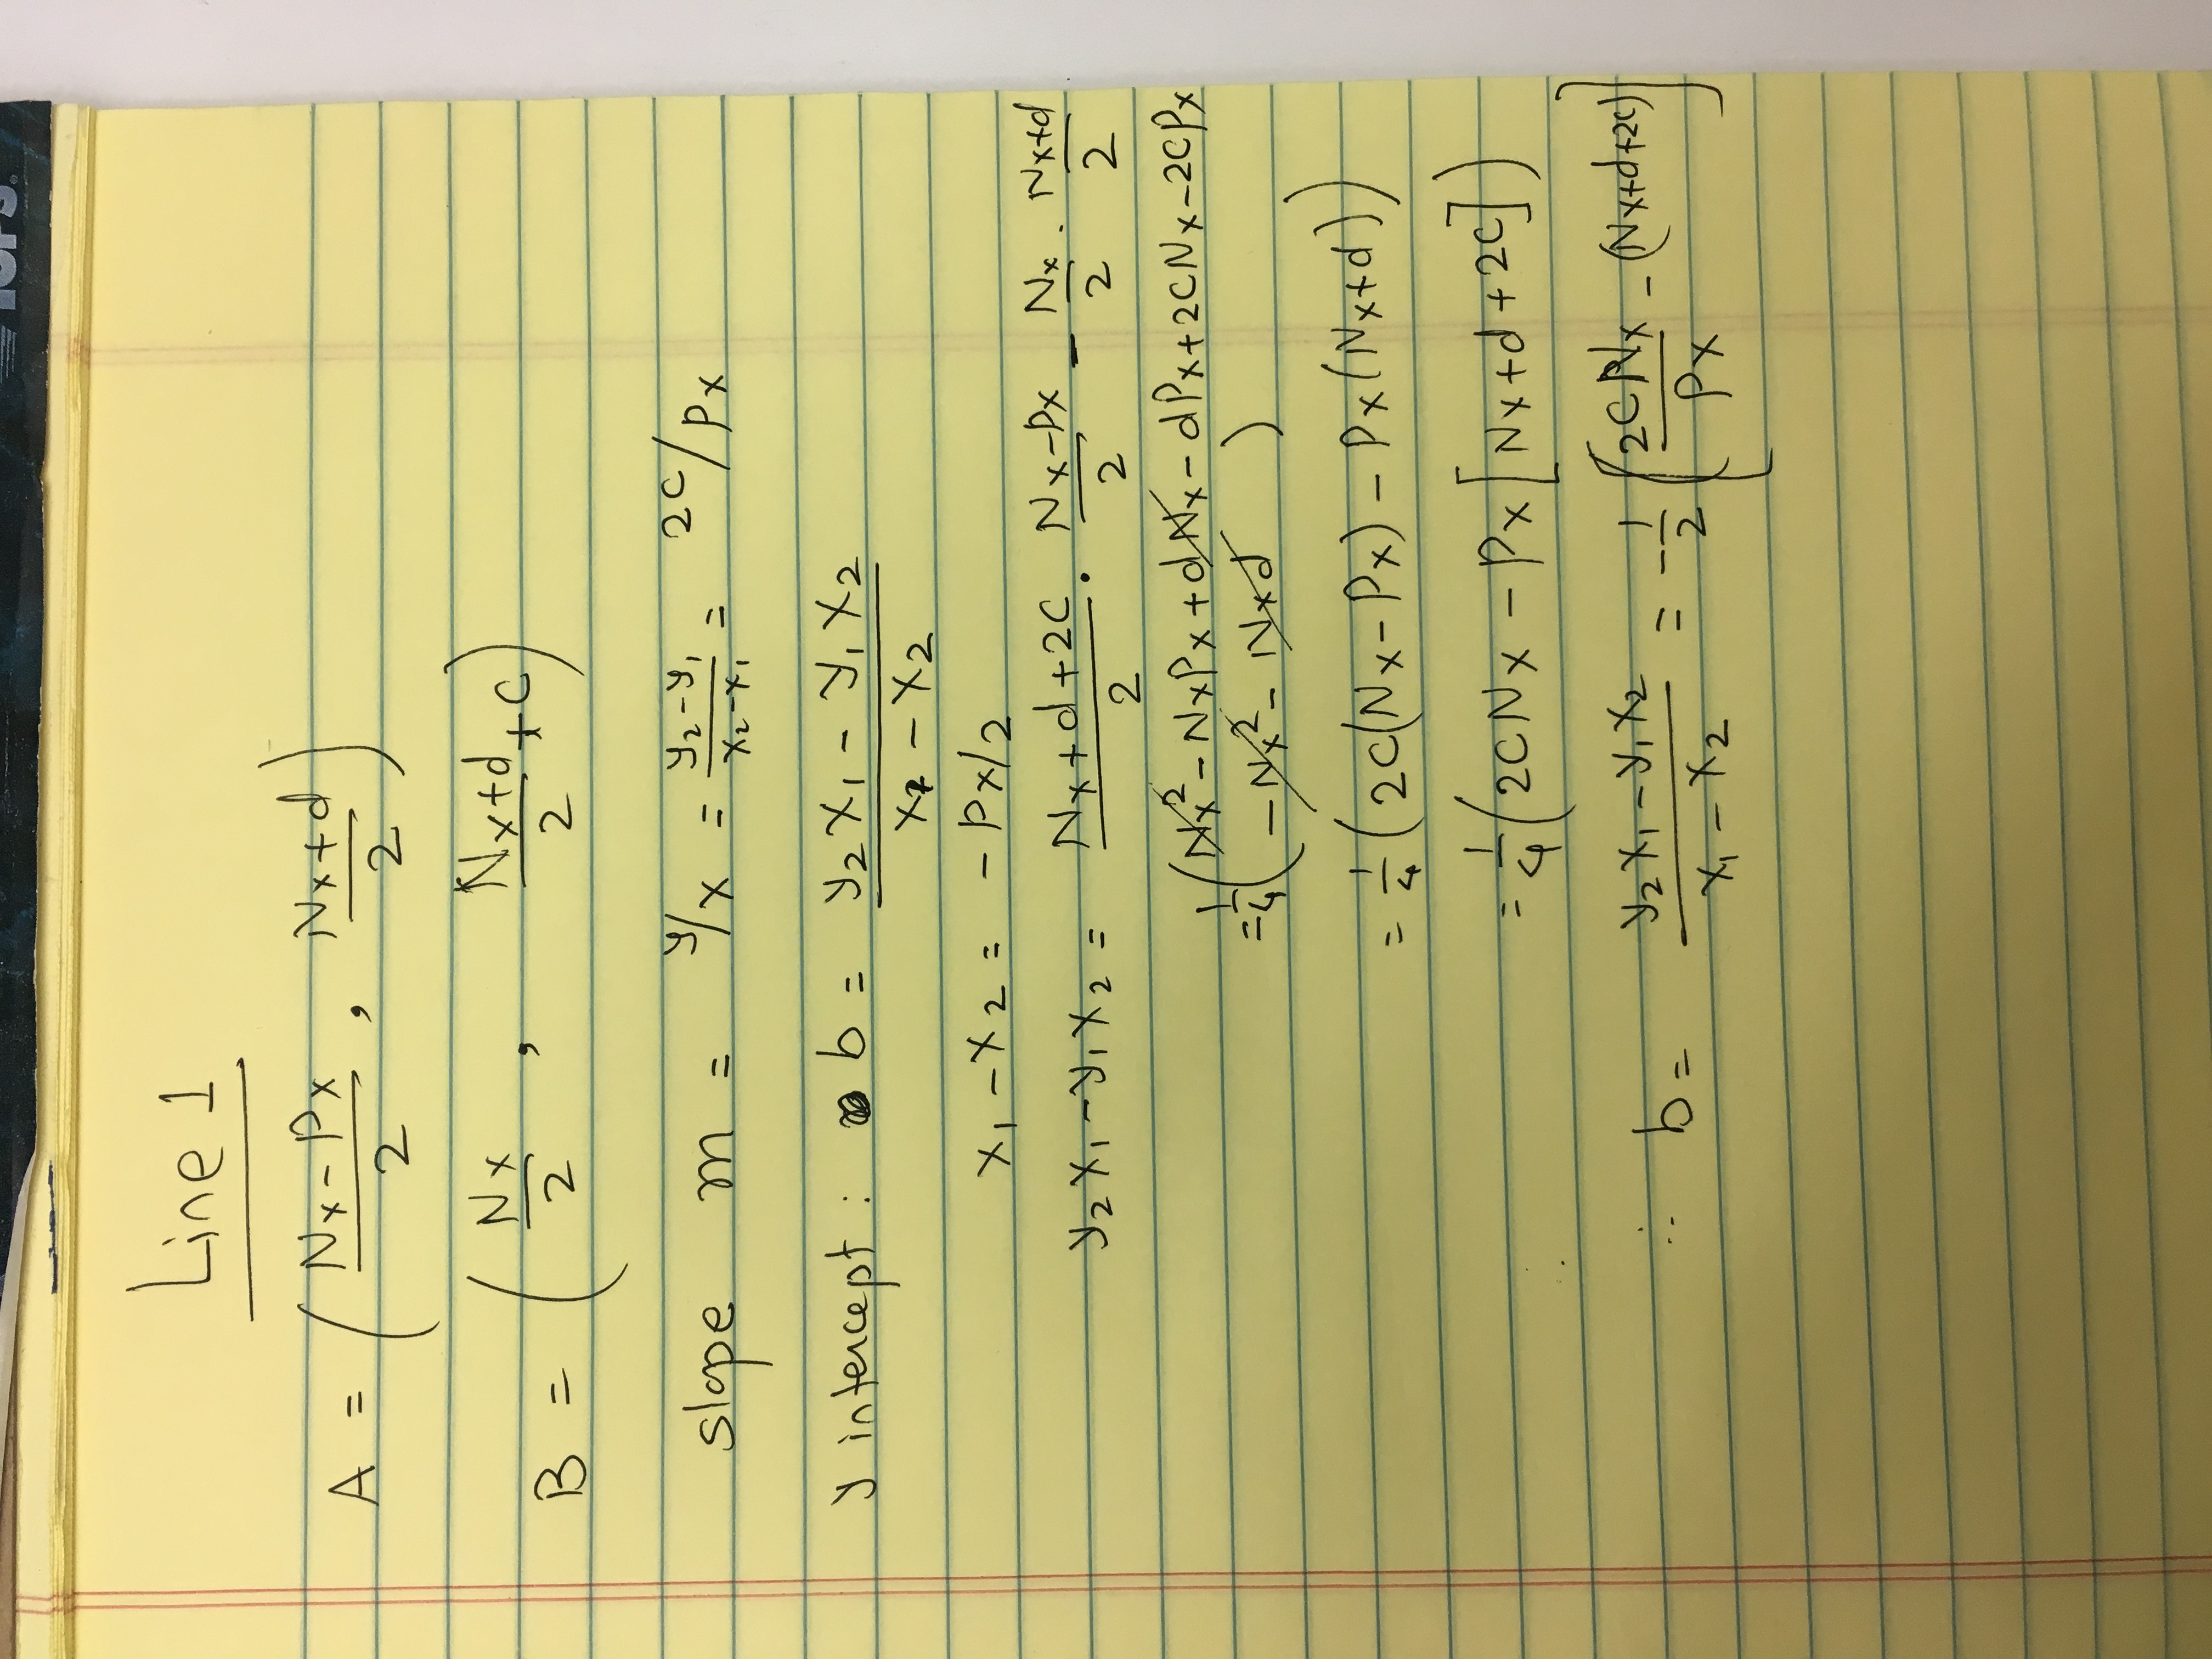 Line 1
A = ( (Nx - Px)/2 , (Nx+d)/2 )
B = ( Nx/2 , (Nx+d)/2 + C )
slope m = y/x = (y2 - y1)/(x2 - x1) = 2C/Px
y intercept : b = (y2 x1 - y1 x2)/(x1 - x2)
x1 - x2 = - Px/2
y2 x1 - y1 x2 = (Nx + d + 2C)/2 · (Nx - Px)/2 - Nx/2 · (Nx+d)/2
= 1/4 ( Nx² - NxPx + dNx - dPx + 2CNx - 2CPx
- Nx² - Nxd )
= 1/4 ( 2C(Nx - Px) - Px(Nx+d) )
= 1/4 ( 2CNx - Px [ Nx + d + 2C ] )
∴ b = (y2 x1 - y1 x2)/(x1 - x2) = - 1/2 [ ( 2CNx/Px - (Nx+d+2C) ]
TOPS.